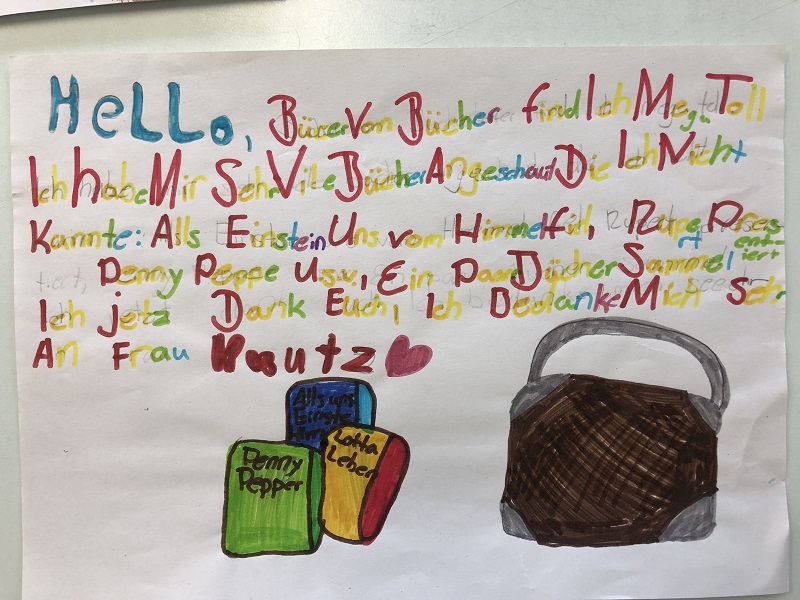 Hello, Bücer Von Bücher find Ich Mega Toll
Ich habe Mir Sehr Vile Bücher Angeschaut Die Ich Nicht
Kannte: Alls Einstein Uns vom Himmel fil, Rupert Presentiert
Penny Peppe U.s.v., Ein paar Bücher Sammel
Ich jetz Dank Euch, Ich Bedanke Mich Sehr
An Frau
Alls uns
Einste
Lotta
Leben
Penny
Pepper